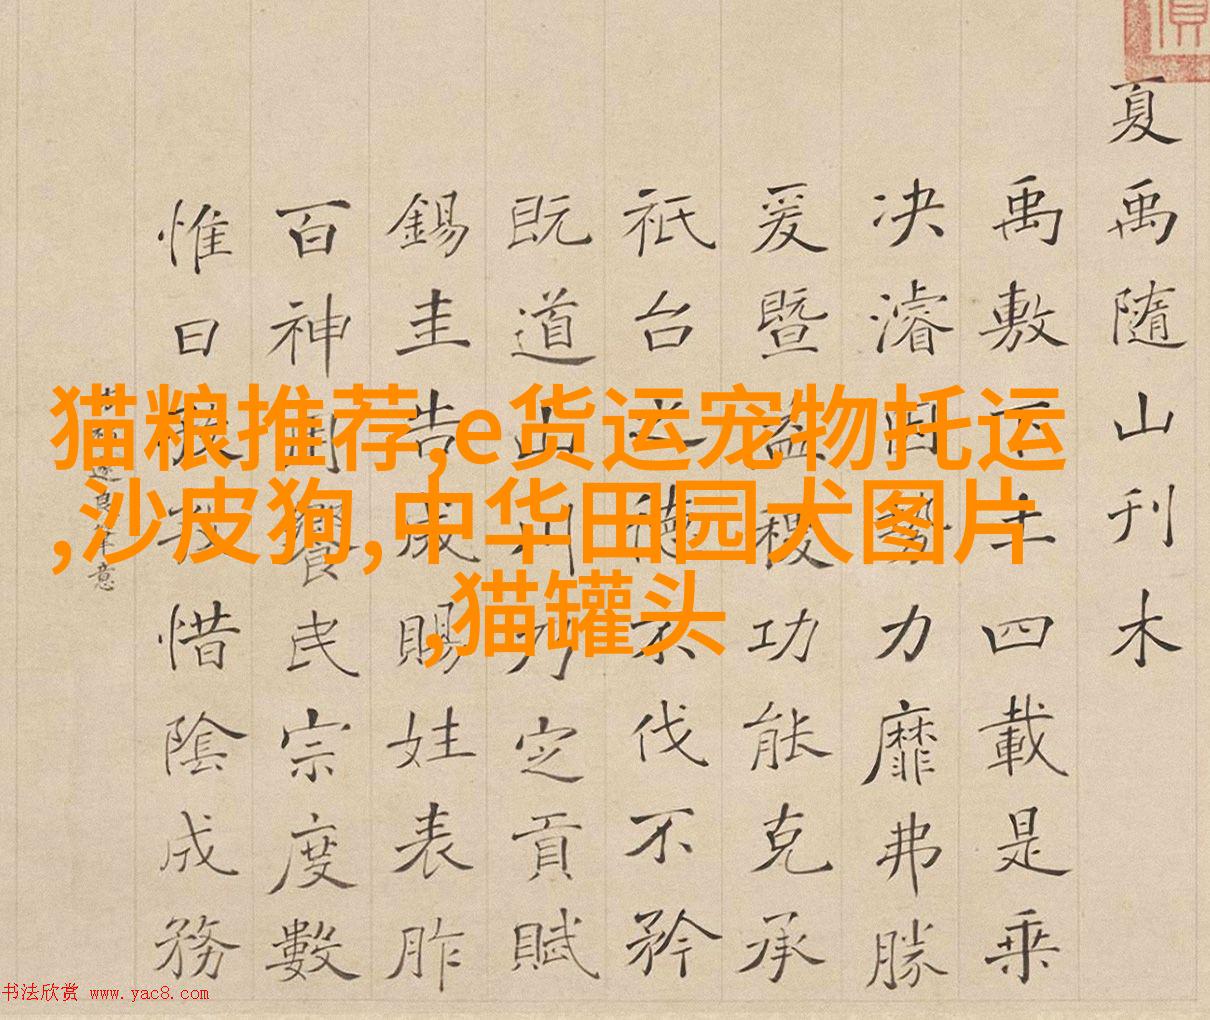 猫粮推荐,e货运宠物托运
,沙皮狗,中华田园犬图片
,猫罐头
夏禹隨山刊木
禹敷下土四載是乗
决濬因勢力靡弗勝
爰暨益稷功能克承
祇台之德不伐不矜
既道山川乃定貢賦
錫圭告成賜姓表胙
百神則饗民宗度數
惟日孜孜惜陰成務
意
书法欣赏 www.yac8.com